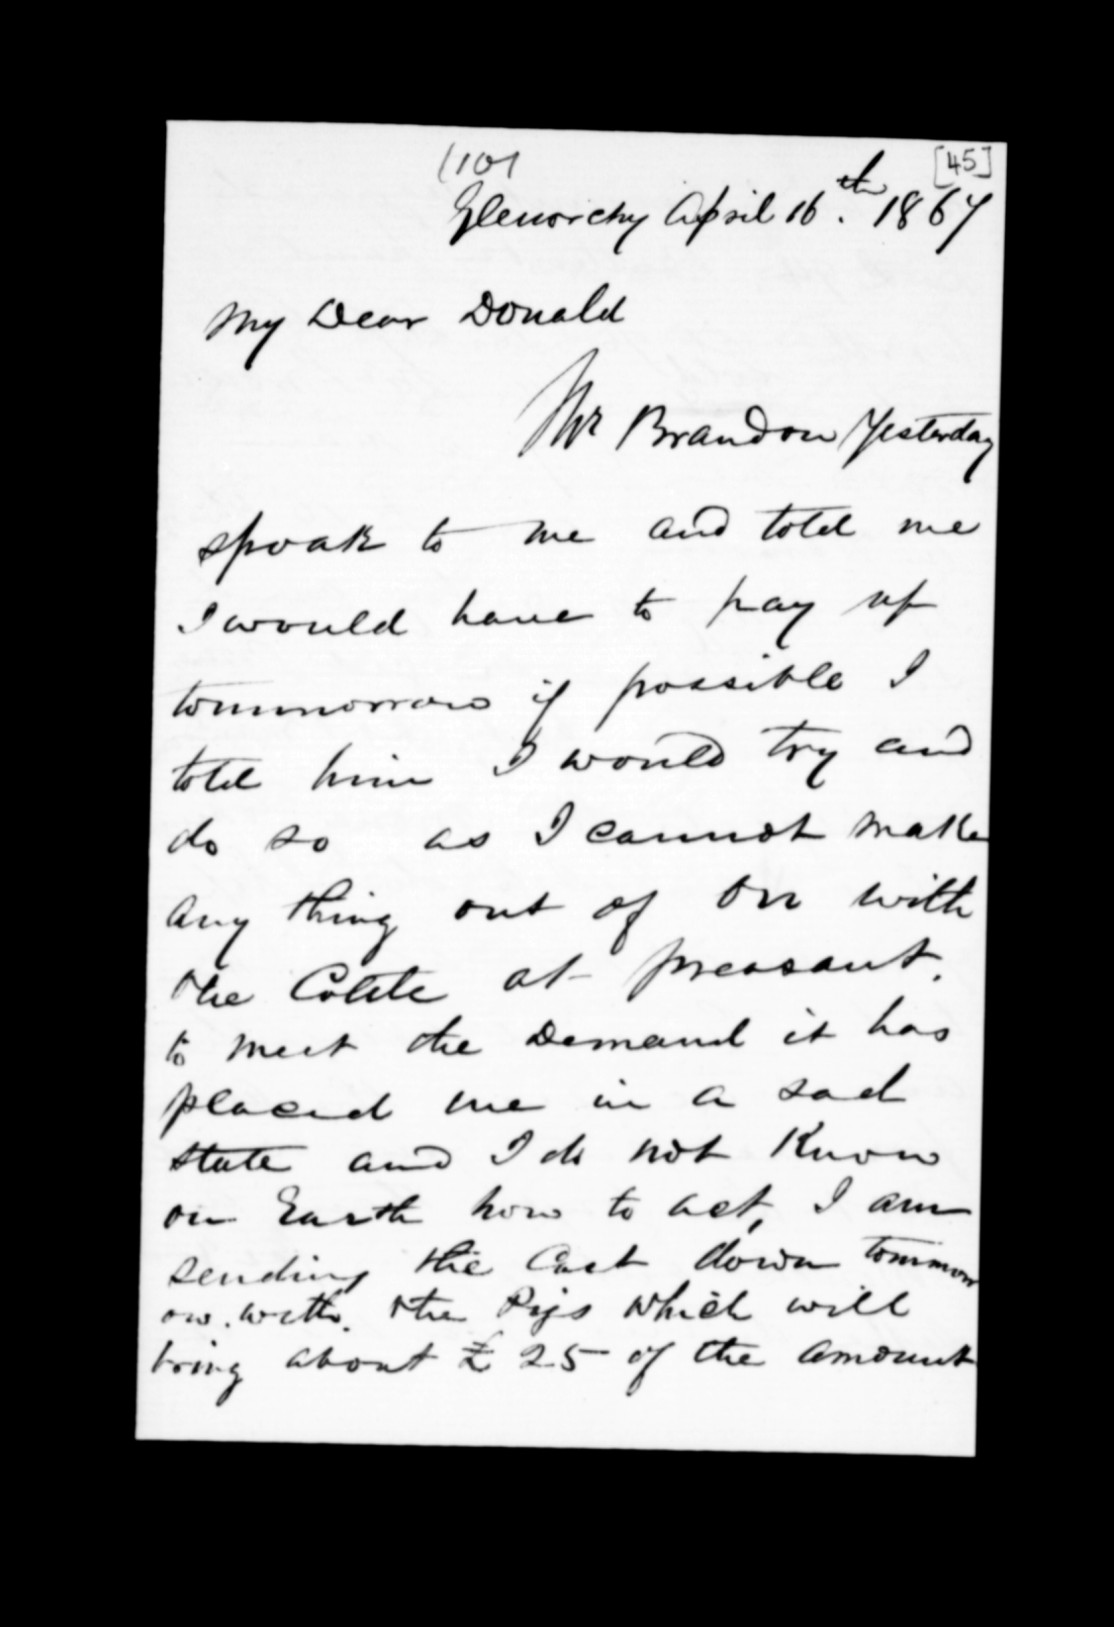 (101
[45]
Glenorchy April 16th. 1867
My Dear Donald
Mr Brandon Yesterday
spoak to me and told me
I would have to pay up
tommorrow if possible I
told him I would try and
do so as I cannot make
any thing out of with
the Catle at preasant.
to meet the Demand it has
placed me in a sad
state and I do not Know
on Earth how to act, I am
sending the Cart down tommorr
ow. with. the Pigs which will
bring about £25 of the amount